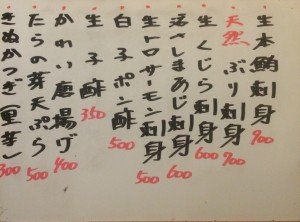 生本鮪刺身 900
天然ぶり刺身 900
生くじら刺身 600
活〆しまあじ刺身 600
生トロサーモン刺身 500
白子ポン酢 500
生子酢 350
かれい唐揚げ 400
たらの芽天ぷら 500
きぬかつぎ（里芋） 300